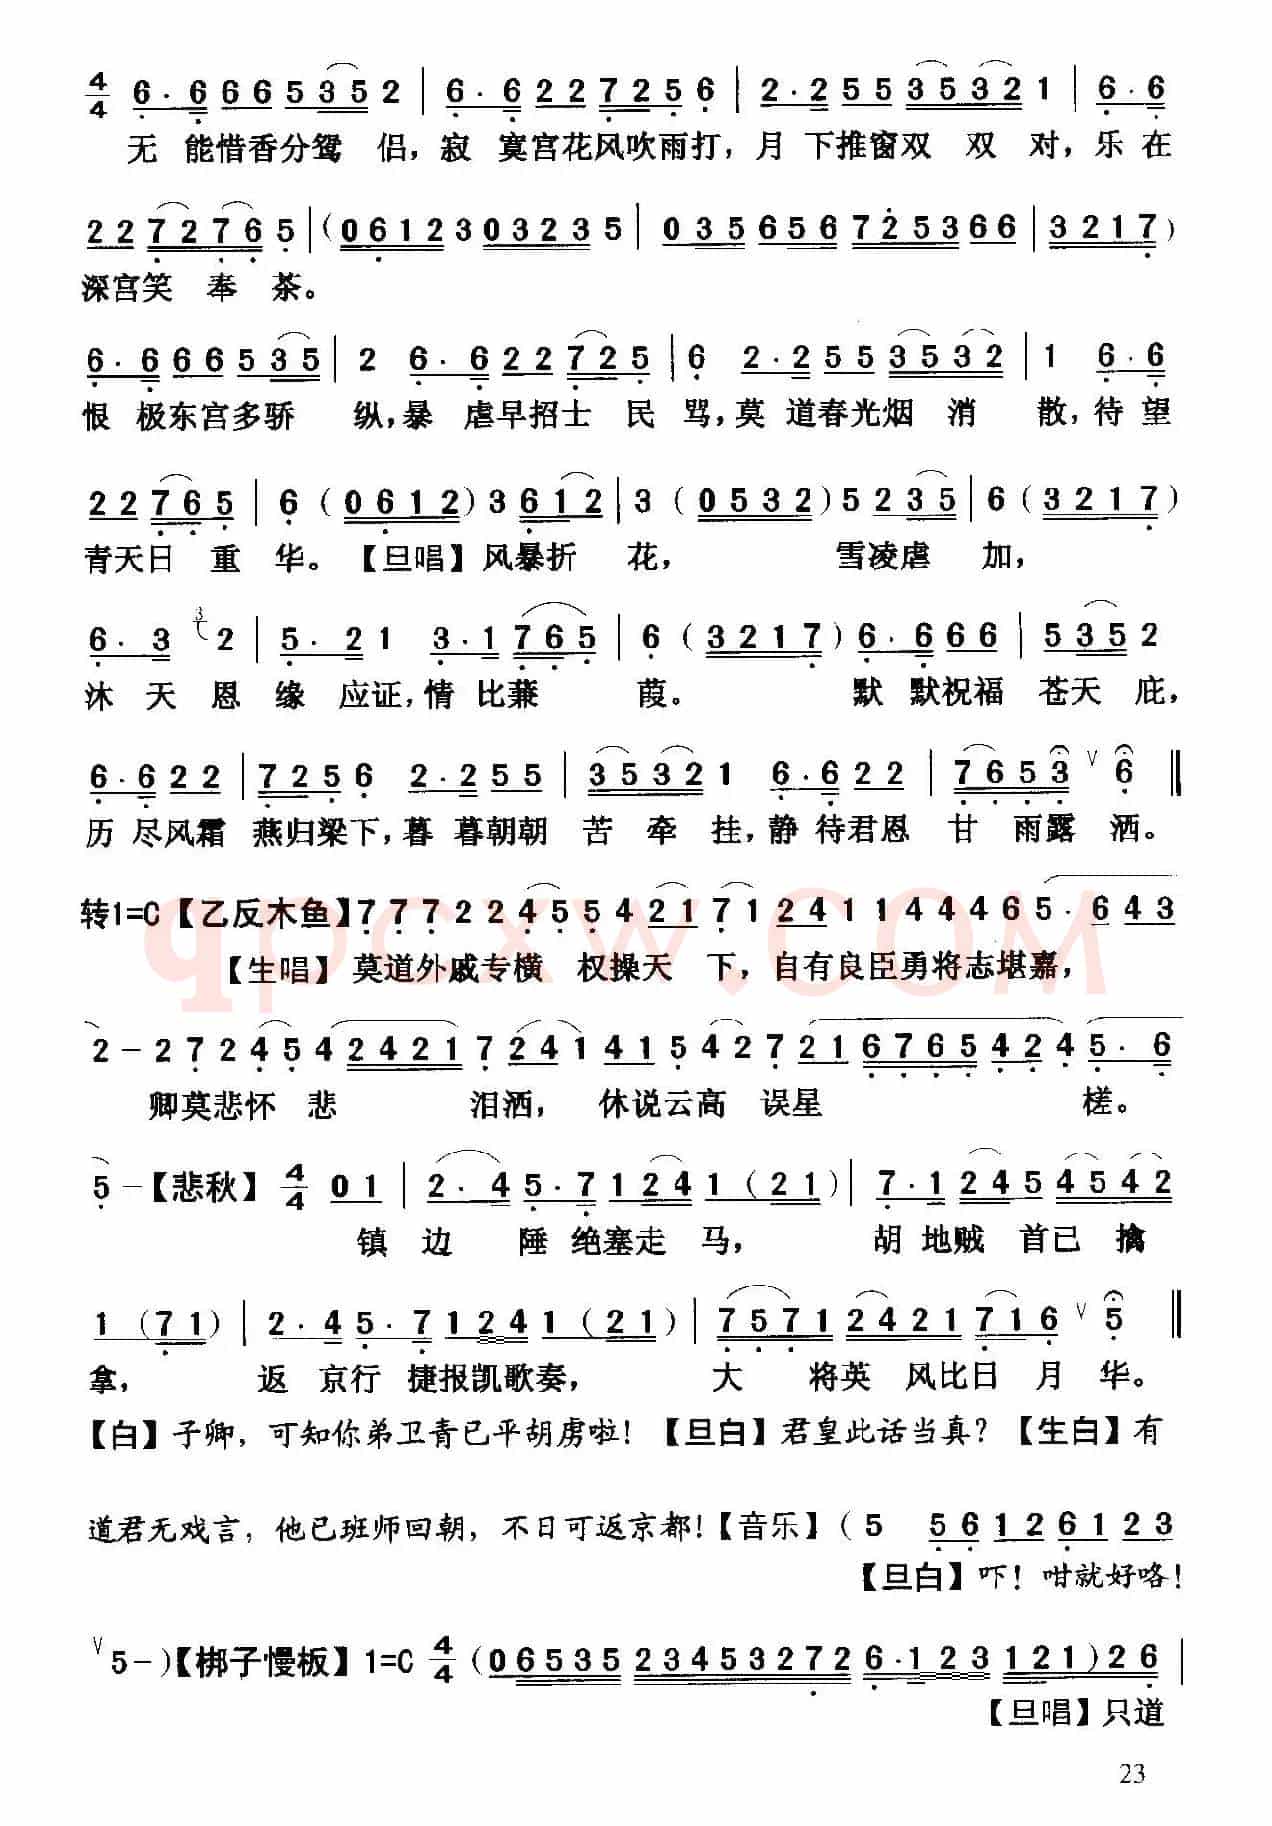 4/4 6·6 6 6 5 3 5 2 | 6·6 2 2 7 2 5 6 | 2·2 5 5 3 5 3 2 1 | 6·6
无 能惜香分鸳 侣，寂 寞宫花风吹雨打，月 下推窗双 双 对，乐 在
2 2 7 2 7 6 5 | (0 6 1 2 3 0 3 2 3 5 | 0 3 5 6 5 6 7 2 5 3 6 6 | 3 2 1 7)
深宫笑 奉 茶。
6·6 6 6 5 3 5 | 2 6·6 2 2 7 2 5 | 6 2·2 5 5 3 5 3 2 | 1 6·6
恨 极东宫多骄 纵，暴 虐早招士 民 骂，莫 道春光烟 消 散，待 望
2 2 7 6 5 | 6 (0 6 1 2) 3 6 1 2 | 3 (0 5 3 2) 5 2 3 5 | 6 (3 2 1 7)
青天日 重 华。【旦唱】风暴折 花， 雪凌虐 加，
6·3 3 2 | 5·2 1 3·1 7 6 5 | 6 (3 2 1 7) 6·6 6 6 | 5 3 5 2
沐 天 恩 缘 应证，情 比蒹 葭。 默 默祝福 苍天 庇，
6·6 2 2 | 7 2 5 6 2·2 5 5 | 3 5 3 2 1 6·6 2 2 | 7 6 5 3 ∨ 6 ‖
历 尽风霜 燕归梁下，暮 暮朝朝 苦 牵 挂，静 待君恩 甘 雨露 洒。
转1=C【乙反木鱼】7 7 7 2 2 4 5 5 4 2 1 7 1 2 4 1 1 4 4 4 6 5·6 4 3
【生唱】莫道外戚专横 权操天 下，自有良臣勇将志堪嘉，
2 – 2 7 2 4 5 4 2 4 2 1 7 2 4 1 4 1 5 4 2 7 2 1 6 7 6 5 4 2 4 5· 6
卿莫悲怀 悲 泪洒， 休说云高 误星 槎。
5 –【悲秋】4/4 0 1 | 2·4 5·7 1 2 4 1 (2 1) | 7·1 2 4 5 4 5 4 2
镇 边 陲 绝塞走 马， 胡 地贼 首已 擒
1 (7 1) | 2·4 5·7 1 2 4 1 (2 1) | 7 5 7 1 2 4 2 1 7 1 6 ∨ 5 ‖
拿， 返 京行 捷报凯歌奏， 大 将英 风比日 月 华。
【白】子卿，可知你弟卫青已平胡虏啦！【旦白】君皇此话当真？【生白】有
道君无戏言，他已班师回朝，不日可返京都！【音乐】（5 5 6 1 2 6 1 2 3
【旦白】吓！咁就好咯！
∨ 5 –）【梆子慢板】1=C 4/4 (0 6 5 3 5 2 3 4 5 3 2 7 2 6·1 2 3 1 2 1) 2 6 |
【旦唱】只道
23
qpcxw.com